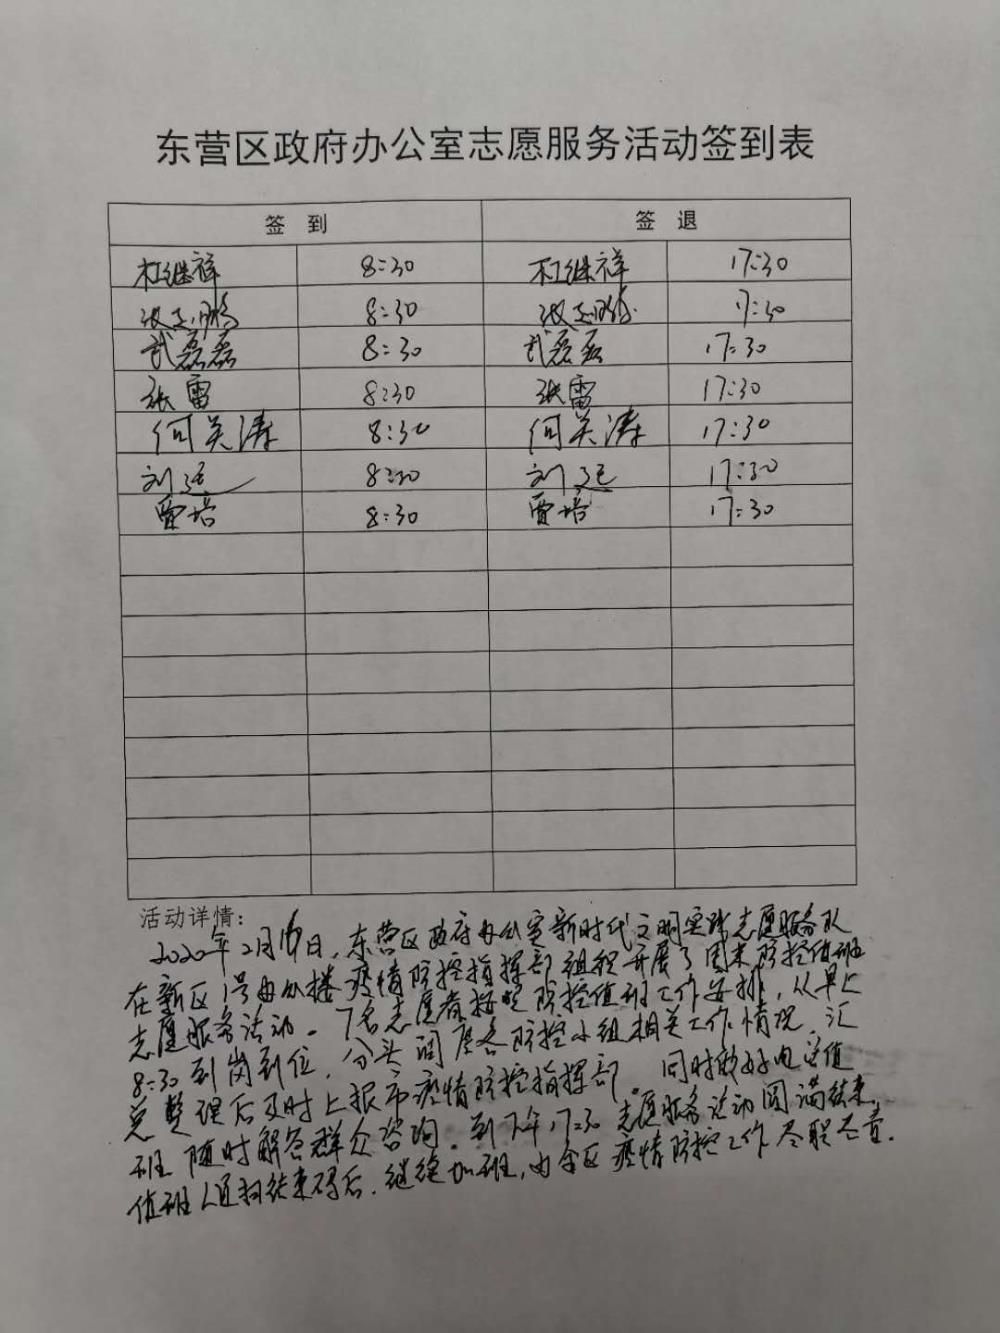 东营区政府办公室志愿服务活动签到表
签 到 签 退
杜继祥 8:30 杜继祥 17:30
张志鹏 8:30 张志鹏 17:30
武磊磊 8:30 武磊磊 17:30
张雷 8:30 张雷 17:30
何关涛 8:30 何关涛 17:30
刘廷 8:30 刘廷 17:30
贾培 8:30 贾培 17:30
活动详情:
2020年2月 日,东营区政府办公室新时代文明实践志愿服务队
在新区1号办公楼疫情防控指挥部组织开展了周末防控值班
志愿服务活动。7名志愿者按照防控值班工作安排,从早上
8:30到岗到位,分头调度各防控小组相关工作情况,汇
总整理后及时上报市疫情防控指挥部。同时做好电话值
班,随时解答群众咨询。到下午17:30志愿服务活动圆满结束,
值班人员扫结束码后,继续加班,为全区疫情防控工作尽职尽责.